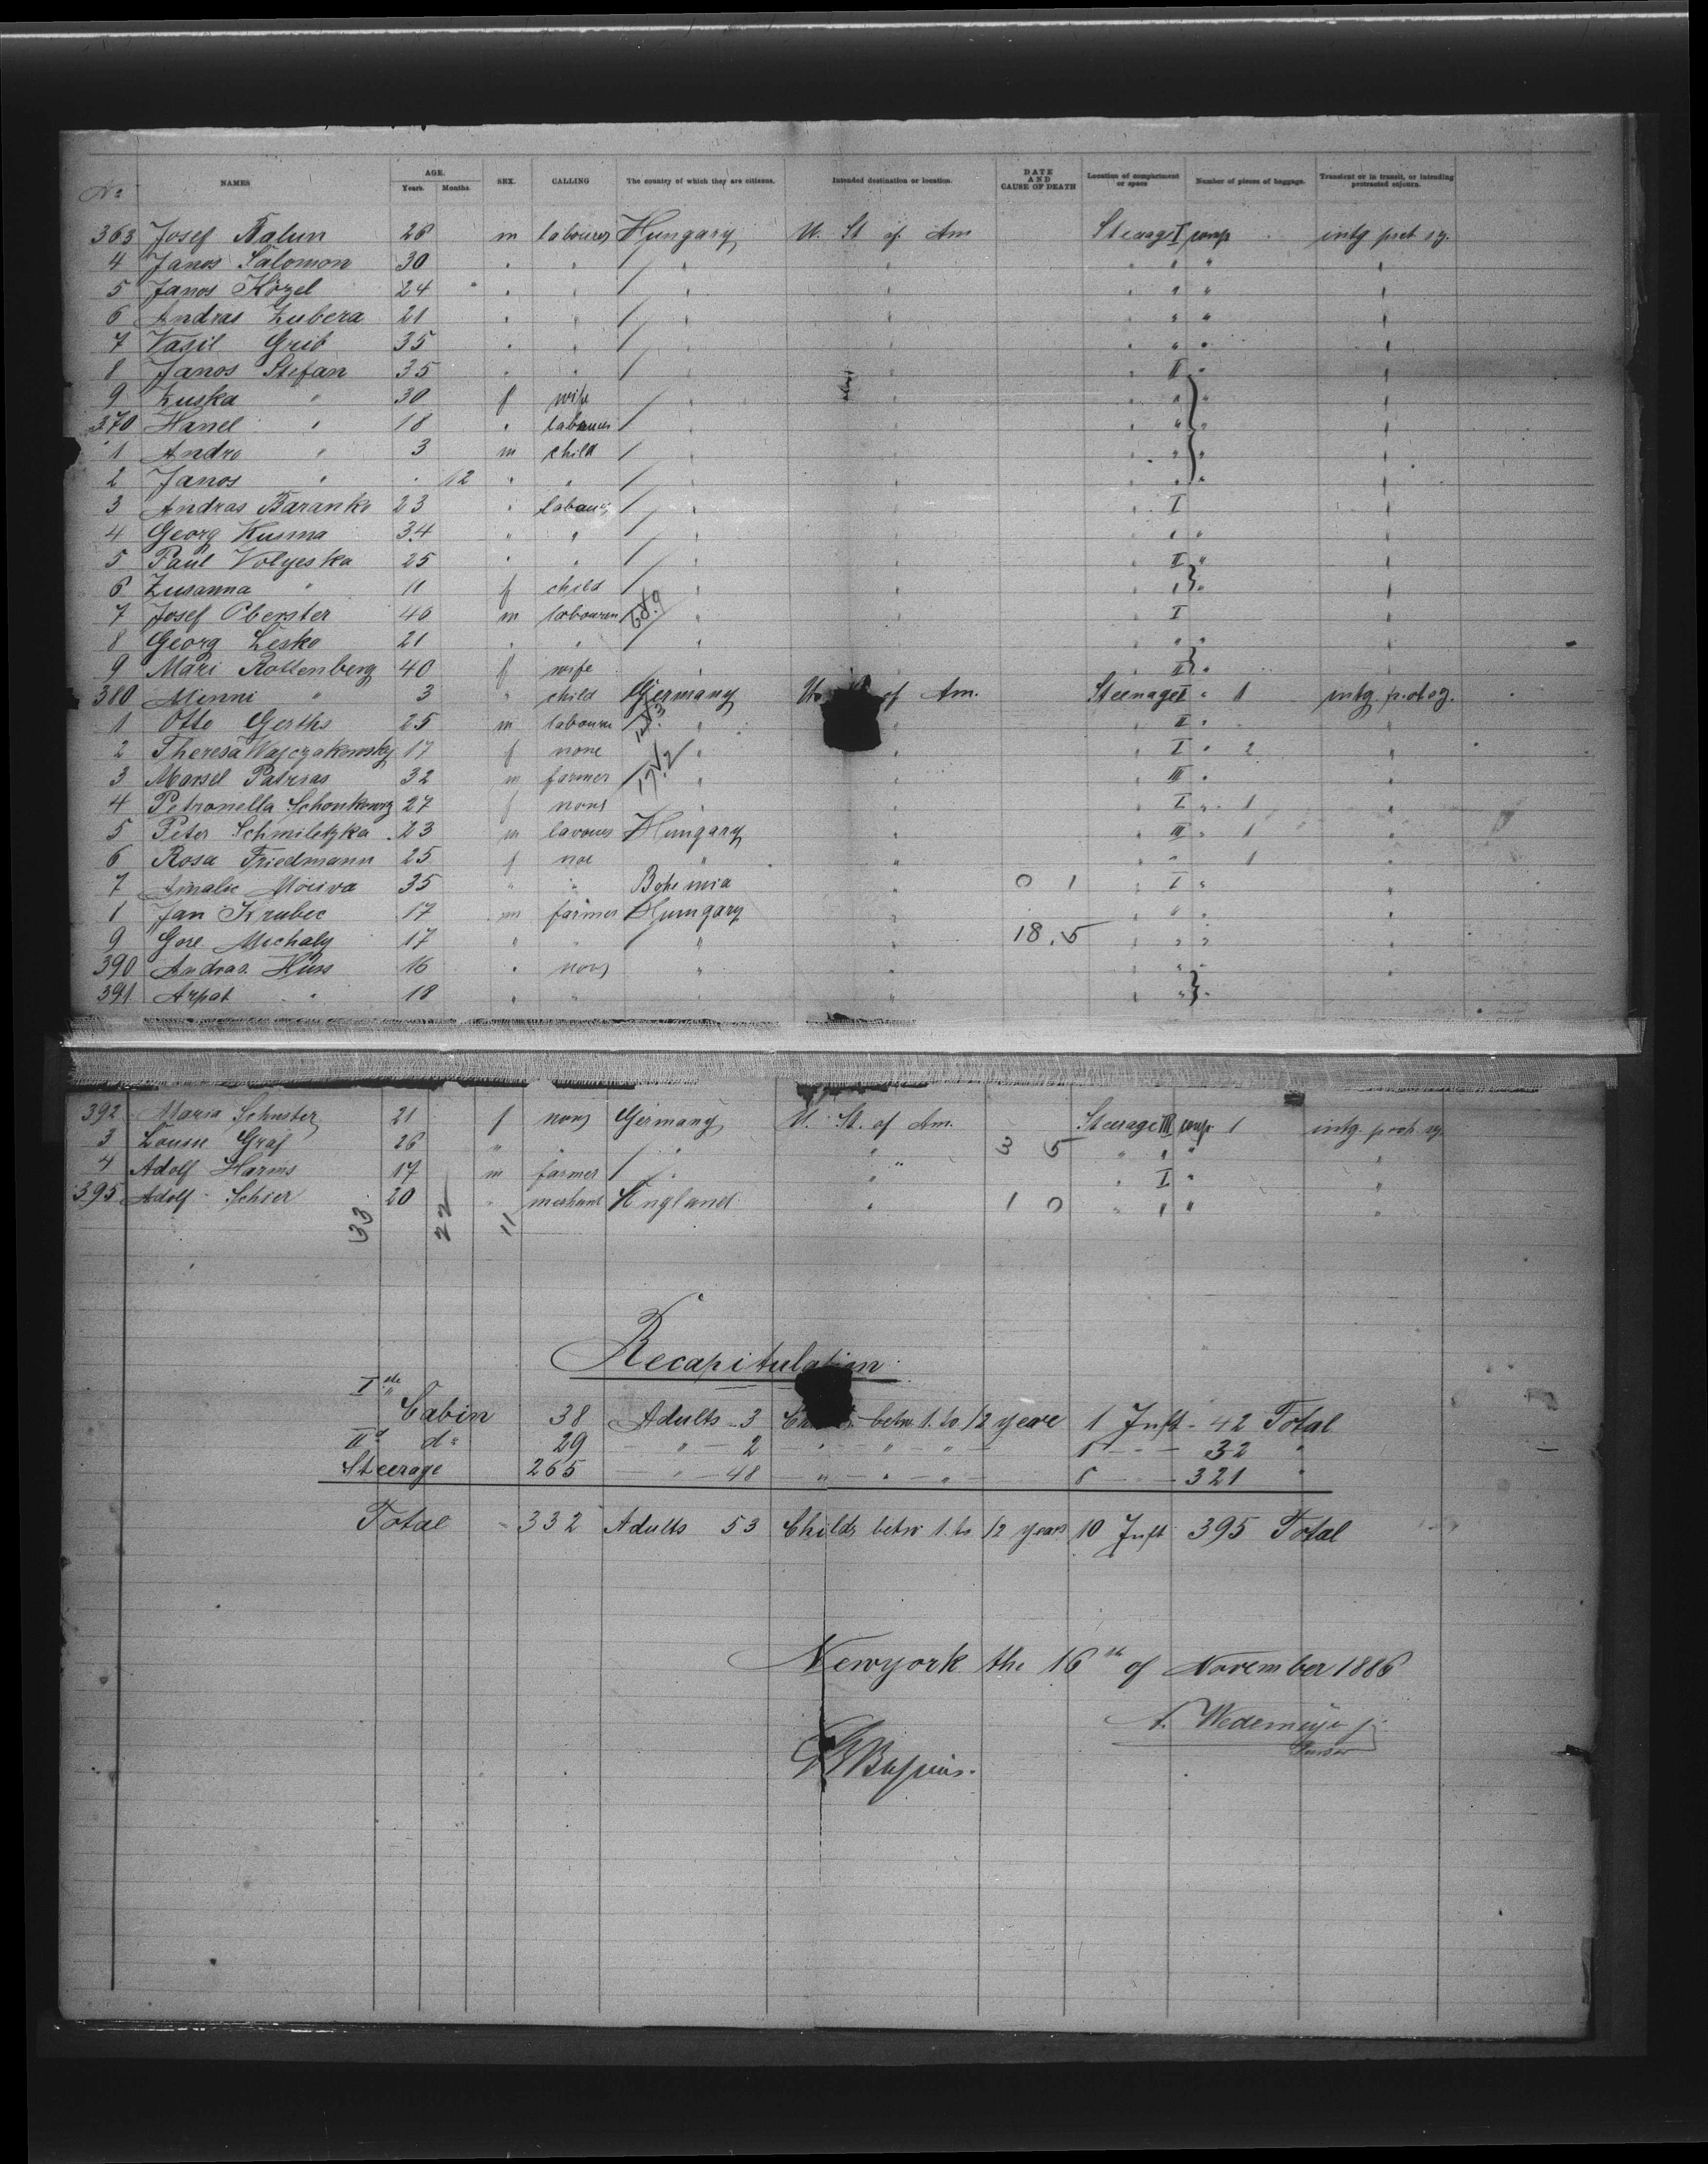 No NAMES AGE. Years. Months. SEX. CALLING The country of which they are citizens. Intended destination or location. DATE AND CAUSE OF DEATH Location of compartment or space Number of pieces of baggage. Transient or in transit, or intending protracted sojourn.
363 Josef Balun 26 m labourer Hungary U. St. of Am Steerage I comp intg prot sg.
4 Janos Salomon 30 " " " " " " " "
5 Janos Közel 24 " " " " " " " "
6 Andras Zubera 21 " " " " " " " "
7 Vasil Greb 35 " " " " " " " "
8 Janos Stefan 35 " " " " " II " "
9 Zuska " 30 f wife " " " " " "
370 Hanel " 18 " labourer " " " " " "
1 Andro " 3 m child " " " " " "
2 Janos " . 12 " " " " " " " "
3 Andras Baranko 23 " labourer " " " I "
4 Georg Kusma 34 " " " " " " " "
5 Paul Volyeska 25 " " " " " II " "
6 Zusanna " 11 f child " " " " " "
7 Josef Oberster 40 m labourer 68.9 " " " I "
8 Georg Lesko 21 " " " " " " " "
9 Mari Rottenberg 40 f wife " " " II " "
380 Minni " 3 " child Germany of Am. Steerage I " 1 intg. prot sg.
1 Otto Gerths 25 m labourer " " " II " "
2 Theresa Wajczakowsky 17 f none " " " I " 2 "
3 Marsel Patrias 32 m farmer 17.2 " " " III " "
4 Petronella Schonkowg 27 f none " " " I " 1 "
5 Peter Schmiletzka 23 m lavourer Hungary " " III " 1 "
6 Rosa Friedmann 25 f noe " " " " 1 "
7 Amalie Moriva 35 " " Bohemia " 0 1 " I " "
1 Jan Krubec 17 m farmer Hungary " " " " "
9 Gore Michaly 17 " " " " 18.5 " " " "
390 Andras Huss 16 " none " " " " " "
391 Arpat " 18 " " " " " " "
392 Maria Schuster 21 f none Germany U. St. of Am. Steerage III comp 1 intg. prot. sg.
3 Louise Graf 26 " " " " 3 5 " " " "
4 Adolf Harms 17 m farmer " " " I " "
395 Adolf Schier 20 " merchant England " 1 0 " " " "
33 22 11
Recapitulation
Ite Cabin 38 Adults 3 betw. 1. to 12 years 1 Inft - 42 Total
IId do 29 " 2 " " " 1 32 "
Steerage 265 " 48 " " " 8 321 "
Total 332 Adults 53 Childs betw 1. to 12 years 10 Inft 395 Total
Newyork the 16th of November 1886
A. Wedemeyer jr.
Purser